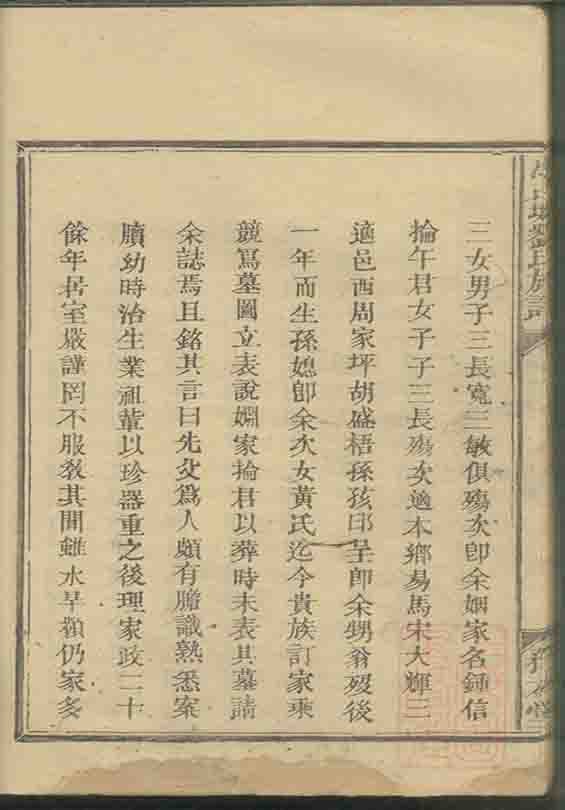 三女男子三長寬三敏俱殤次卽余姻家名鍾信
掄午君女子子三長殤次適本鄉易馬宋大輝三
適邑西周家坪胡盛梧孫孩邱呈卽余甥翁歿後
一年而生孫媳卽余次女黃氏迄今貴族訂家乘
競寫墓圖立表說姻家掄君以葬時未表其墓請
余誌焉且銘其言曰先父爲人頗有膽識熟悉案
牘幼時治生業祖輩以珍器重之後理家政二十
餘年居室嚴謹罔不服教其間雖水旱頻仍家多
劉氏族譜